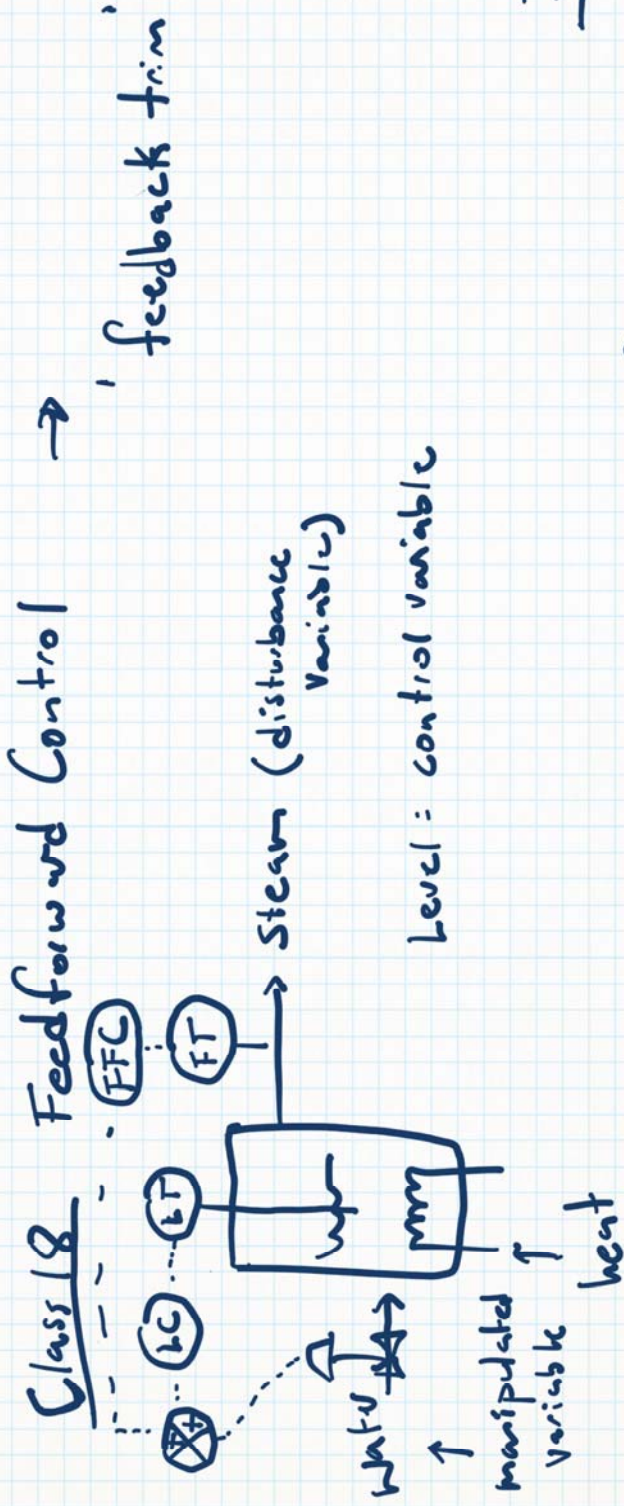 Class 18 Feedforward Control → "feedback trim"
FFC
LC LT FT
+ +
Steam (disturbance
variable)
Level = control variable
water
↑
manipulated
variable
↑
heat